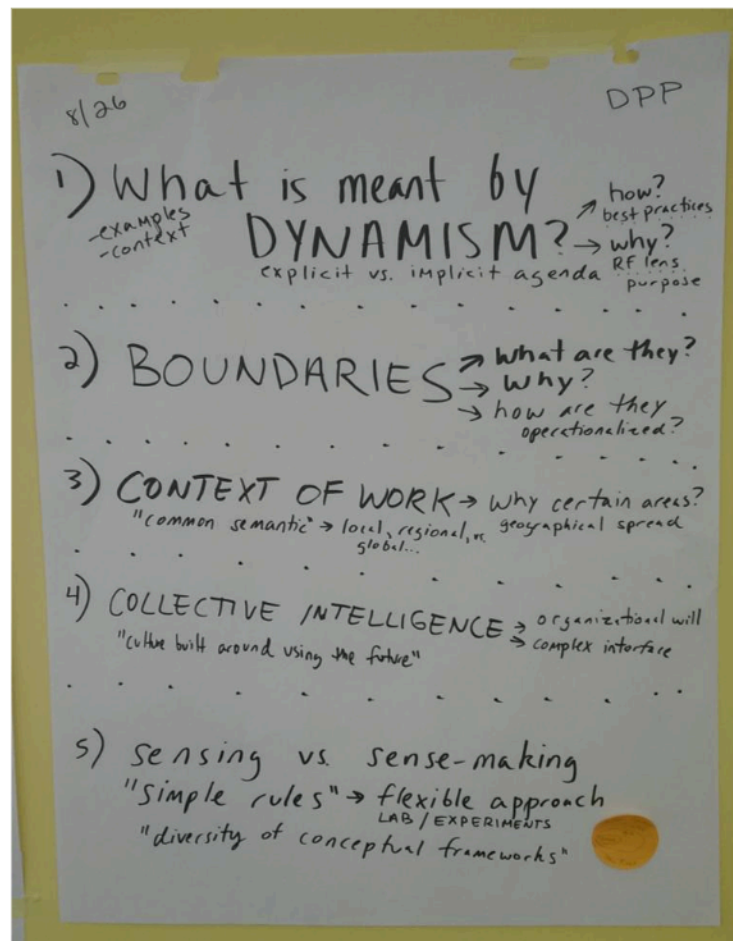 8/26
DPP
1) What is meant by
-examples
-context
DYNAMISM? → how?
best practices
→ why?
RF lens
purpose
explicit vs. implicit agenda
2) BOUNDARIES → what are they?
→ why?
→ how are they
operationalized?
3) CONTEXT OF WORK → why certain areas?
"common semantic" → local, regional, or geographical spread
global...
4) COLLECTIVE INTELLIGENCE → organizational will
→ complex interface
"culture built around using the future"
5) sensing vs. sense-making
"simple rules" → flexible approach
LAB / EXPERIMENTS
"diversity of conceptual frameworks"